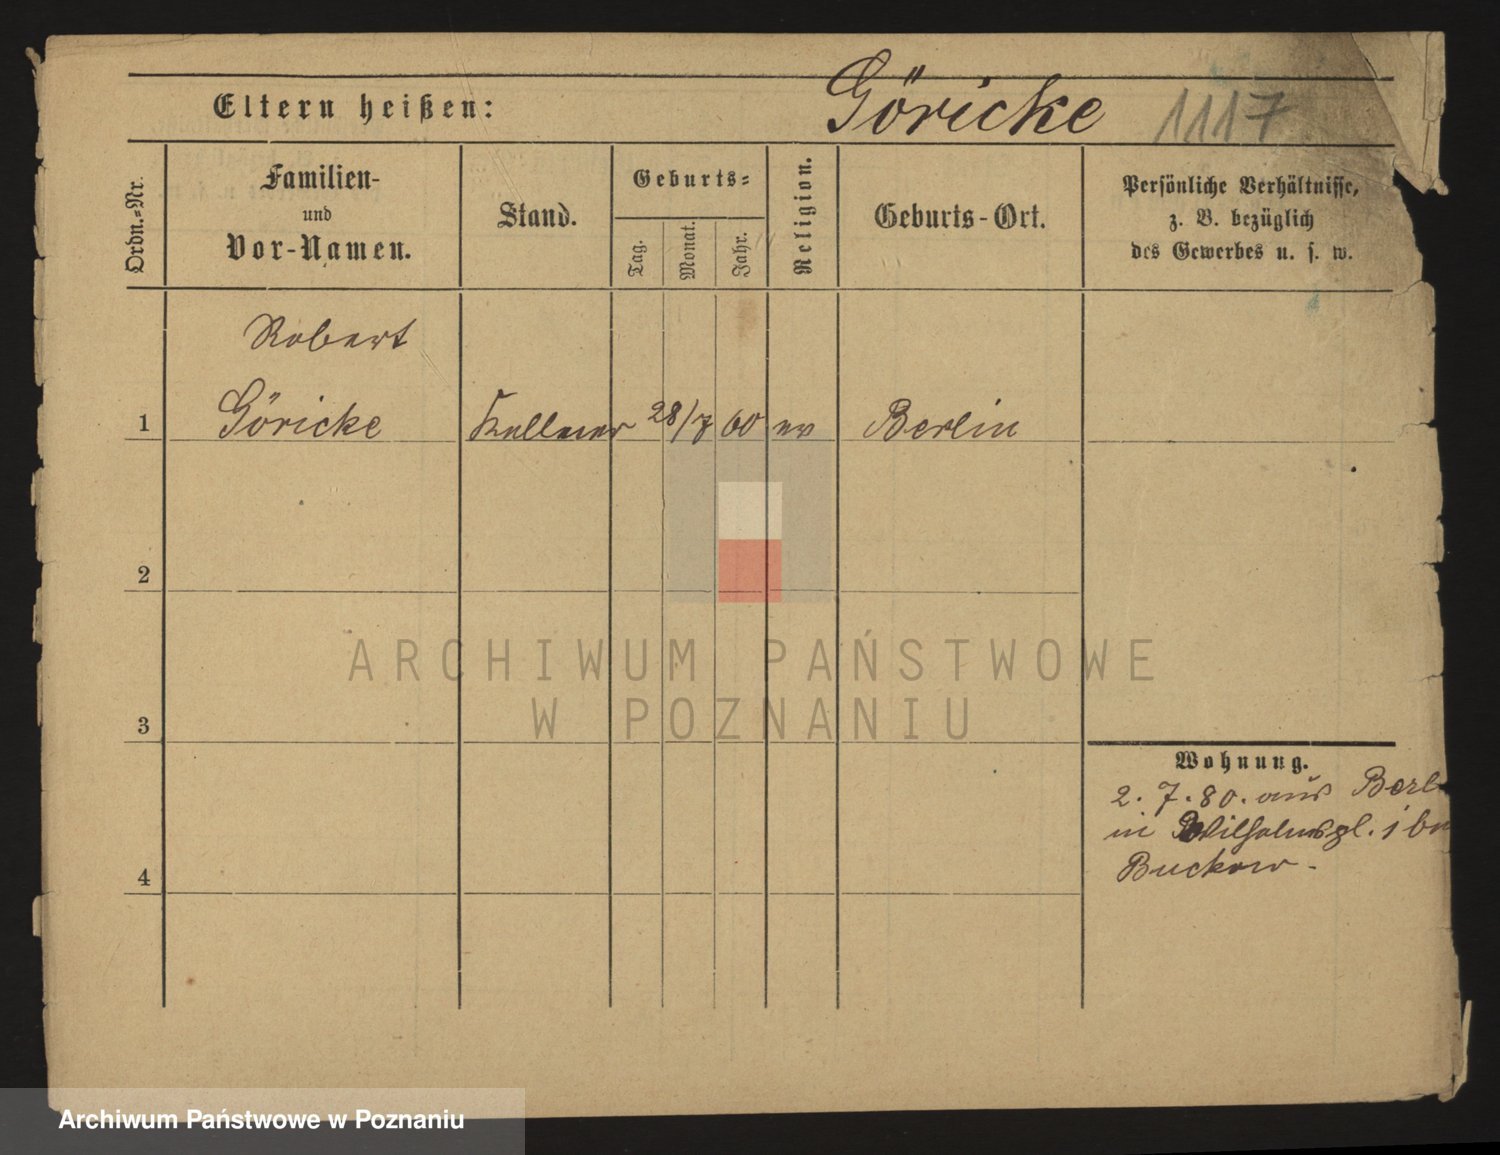 Eltern heißen:
Göricke 1117
Ordn.=Nr.
Familien-
und
Vor-Namen.
Stand.
Geburts=
Tag.
Monat.
Jahr.
Religion.
Geburts-Ort.
Persönliche Verhältnisse,
z. B. bezüglich
des Gewerbes u. s. w.
Robert
1 Göricke Kellner 28/7 60 ev Berlin
2
3
4
Wohnung.
2. 7. 80. aus Berl
in Wilhelmspl. 1 bei
Buckow.
ARCHIWUM PAŃSTWOWE
W POZNANIU
Archiwum Państwowe w Poznaniu